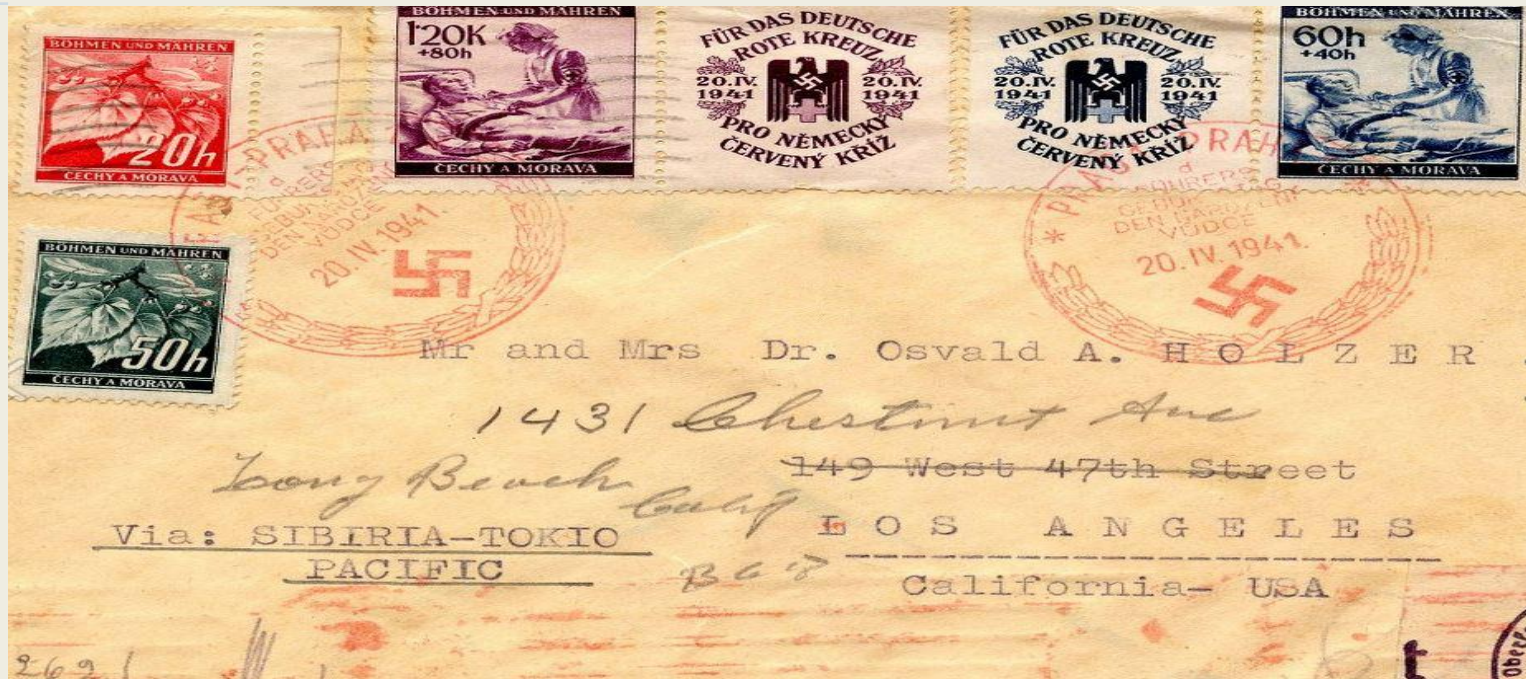 BÖHMEN UND MÄHREN
20h
ČECHY A MORAVA
BÖHMEN UND MÄHREN
1'20K
+80h
ČECHY A MORAVA
FÜR DAS DEUTSCHE
ROTE KREUZ
20.IV. 20.IV.
1941 1941
PRO NĚMECKÝ
ČERVENÝ KŘÍŽ
FÜR DAS DEUTSCHE
ROTE KREUZ
20.IV. 20.IV.
1941 1941
PRO NĚMECKÝ
ČERVENÝ KŘÍŽ
BÖHMEN UND MÄHREN
60h
+40h
ČECHY A MORAVA
BÖHMEN UND MÄHREN
50h
ČECHY A MORAVA
PRAHA
FÜHRERS
DEN NAROZENÍ
VŮDCE
20. IV. 1941.
PRAG PRAHA
FÜHRERS
GEBURTSTAG
DEN NAROZENÍ
VŮDCE
20. IV. 1941.
Mr and Mrs Dr. Osvald A. HOLZER
1431 Chestnut Ave
149 West 47th Street
Long Beach
Calif
Via: SIBIRIA-TOKIO
PACIFIC
LOS ANGELES
California- USA
262
Ober